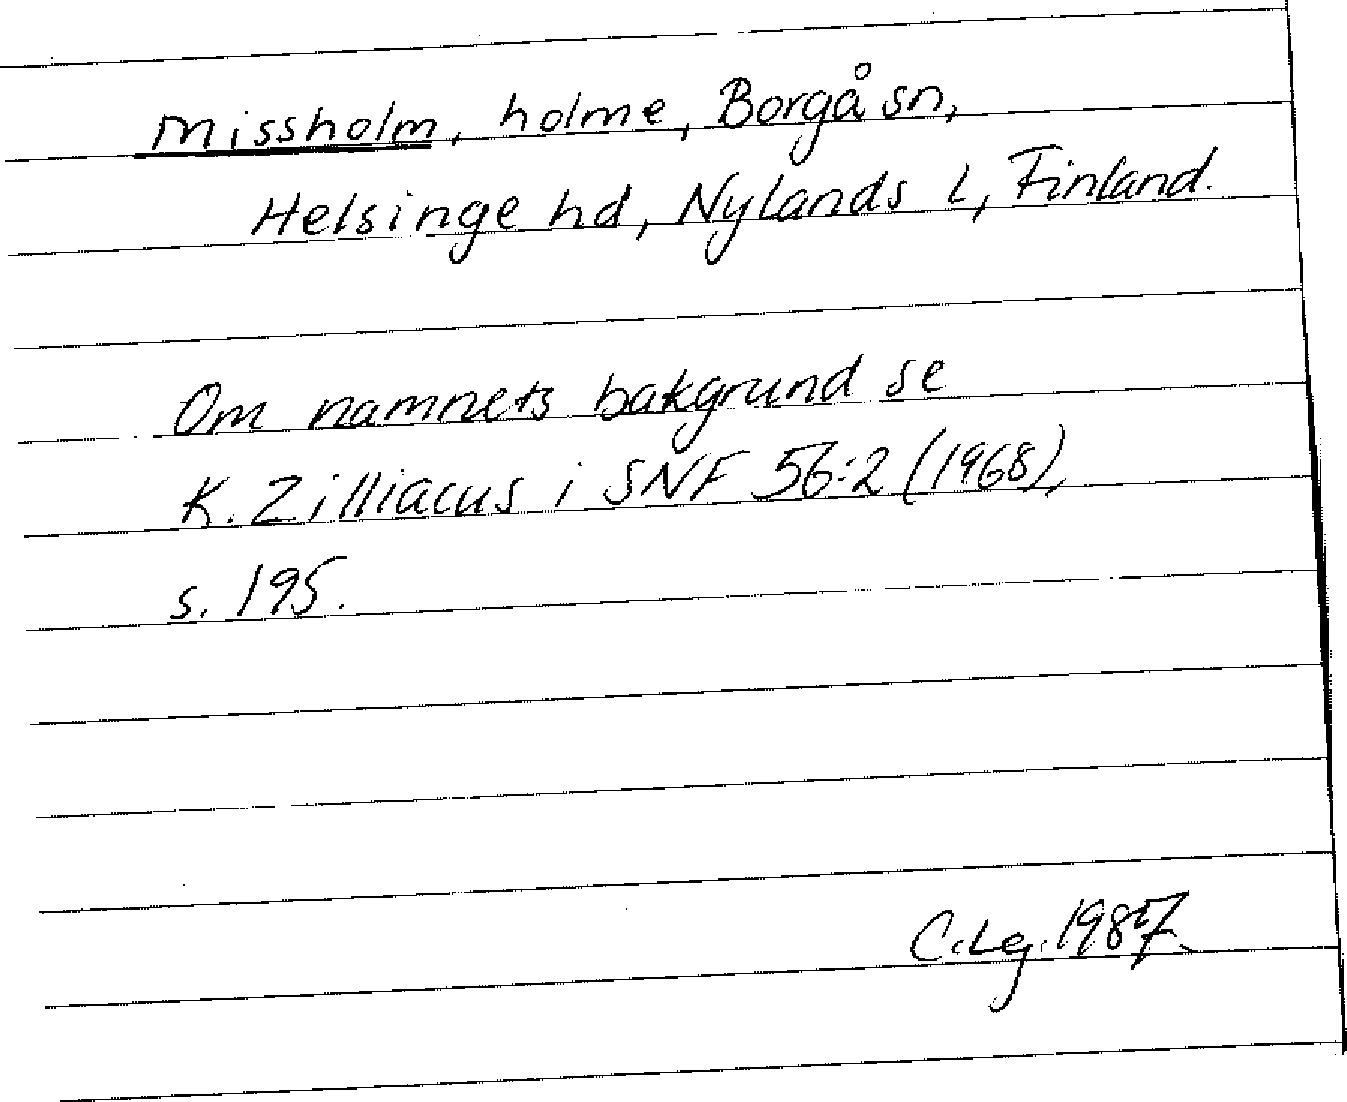 Missholm, holme, Borgå sn,
Helsinge hd, Nylands L, Finland.
Om namnets bakgrund se
K. Zilliacus i SNF 56:2 (1968),
s. 195.
C.Lg. 1987